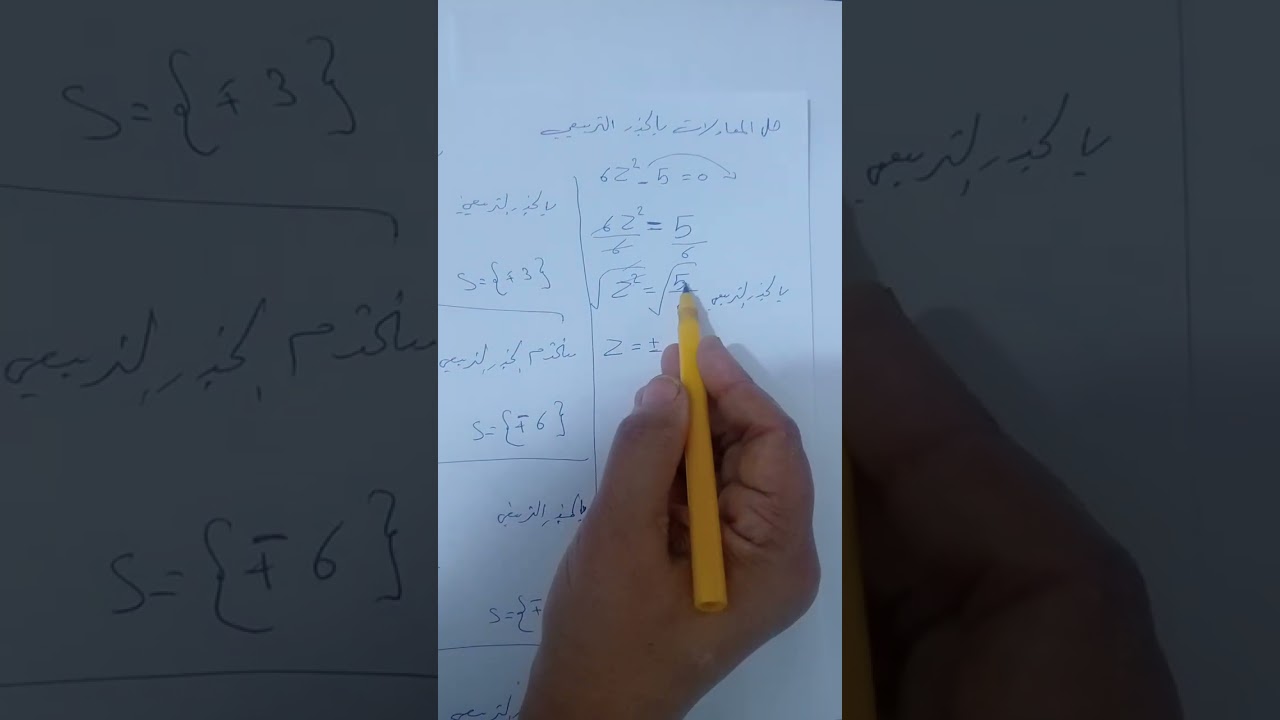 حل المعادلات بالجذر التربيعي
6Z² - 5 = 0
6Z² = 5
6 6
√Z² = √5 بالجذر التربيعي
Z = ±
بالجذر التربيعي
S={∓3}
ستخدم الجذر التربيعي
S={∓6}
بالجذر التربيعي
S={∓
التربيعي